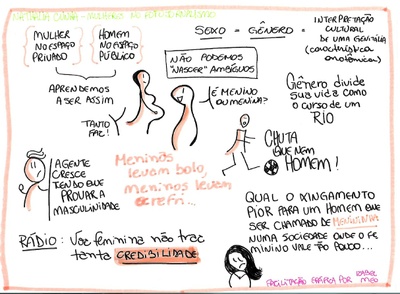 NATHALIA CUNHA - MULHERES NO FOTOJORNALISMO
MULHER
NO ESPAÇO
PRIVADO
HOMEM
NO ESPAÇO
PÚBLICO
APRENDEMOS
A SER ASSIM
SEXO = GÊNERO =
INTERPRETAÇÃO
CULTURAL
DE UMA GENITÁLIA
(característica
anatômica)
NÃO PODEMOS
"NASCER" AMBÍGUOS
É MENINO
OU MENINA?
TANTO
FAZ!
Gênero divide
sua vida como
o curso de um
RIO
CHUTA
QUE NEM
HOMEM!
A GENTE
CRESCE
TENDO QUE
PROVAR A
MASCULINIDADE
Meninas
levam bolo,
meninos levam
o refri...
RÁDIO: Voz feminina não traz
tanta CREDIBILIDADE
QUAL O XINGAMENTO
PIOR PARA UM HOMEM QUE
SER CHAMADO DE MENININHA
NUMA SOCIEDADE ONDE O FE
MININO VALE TÃO POUCO...
FACILITAÇÃO GRÁFICA POR ISABEL
MEO